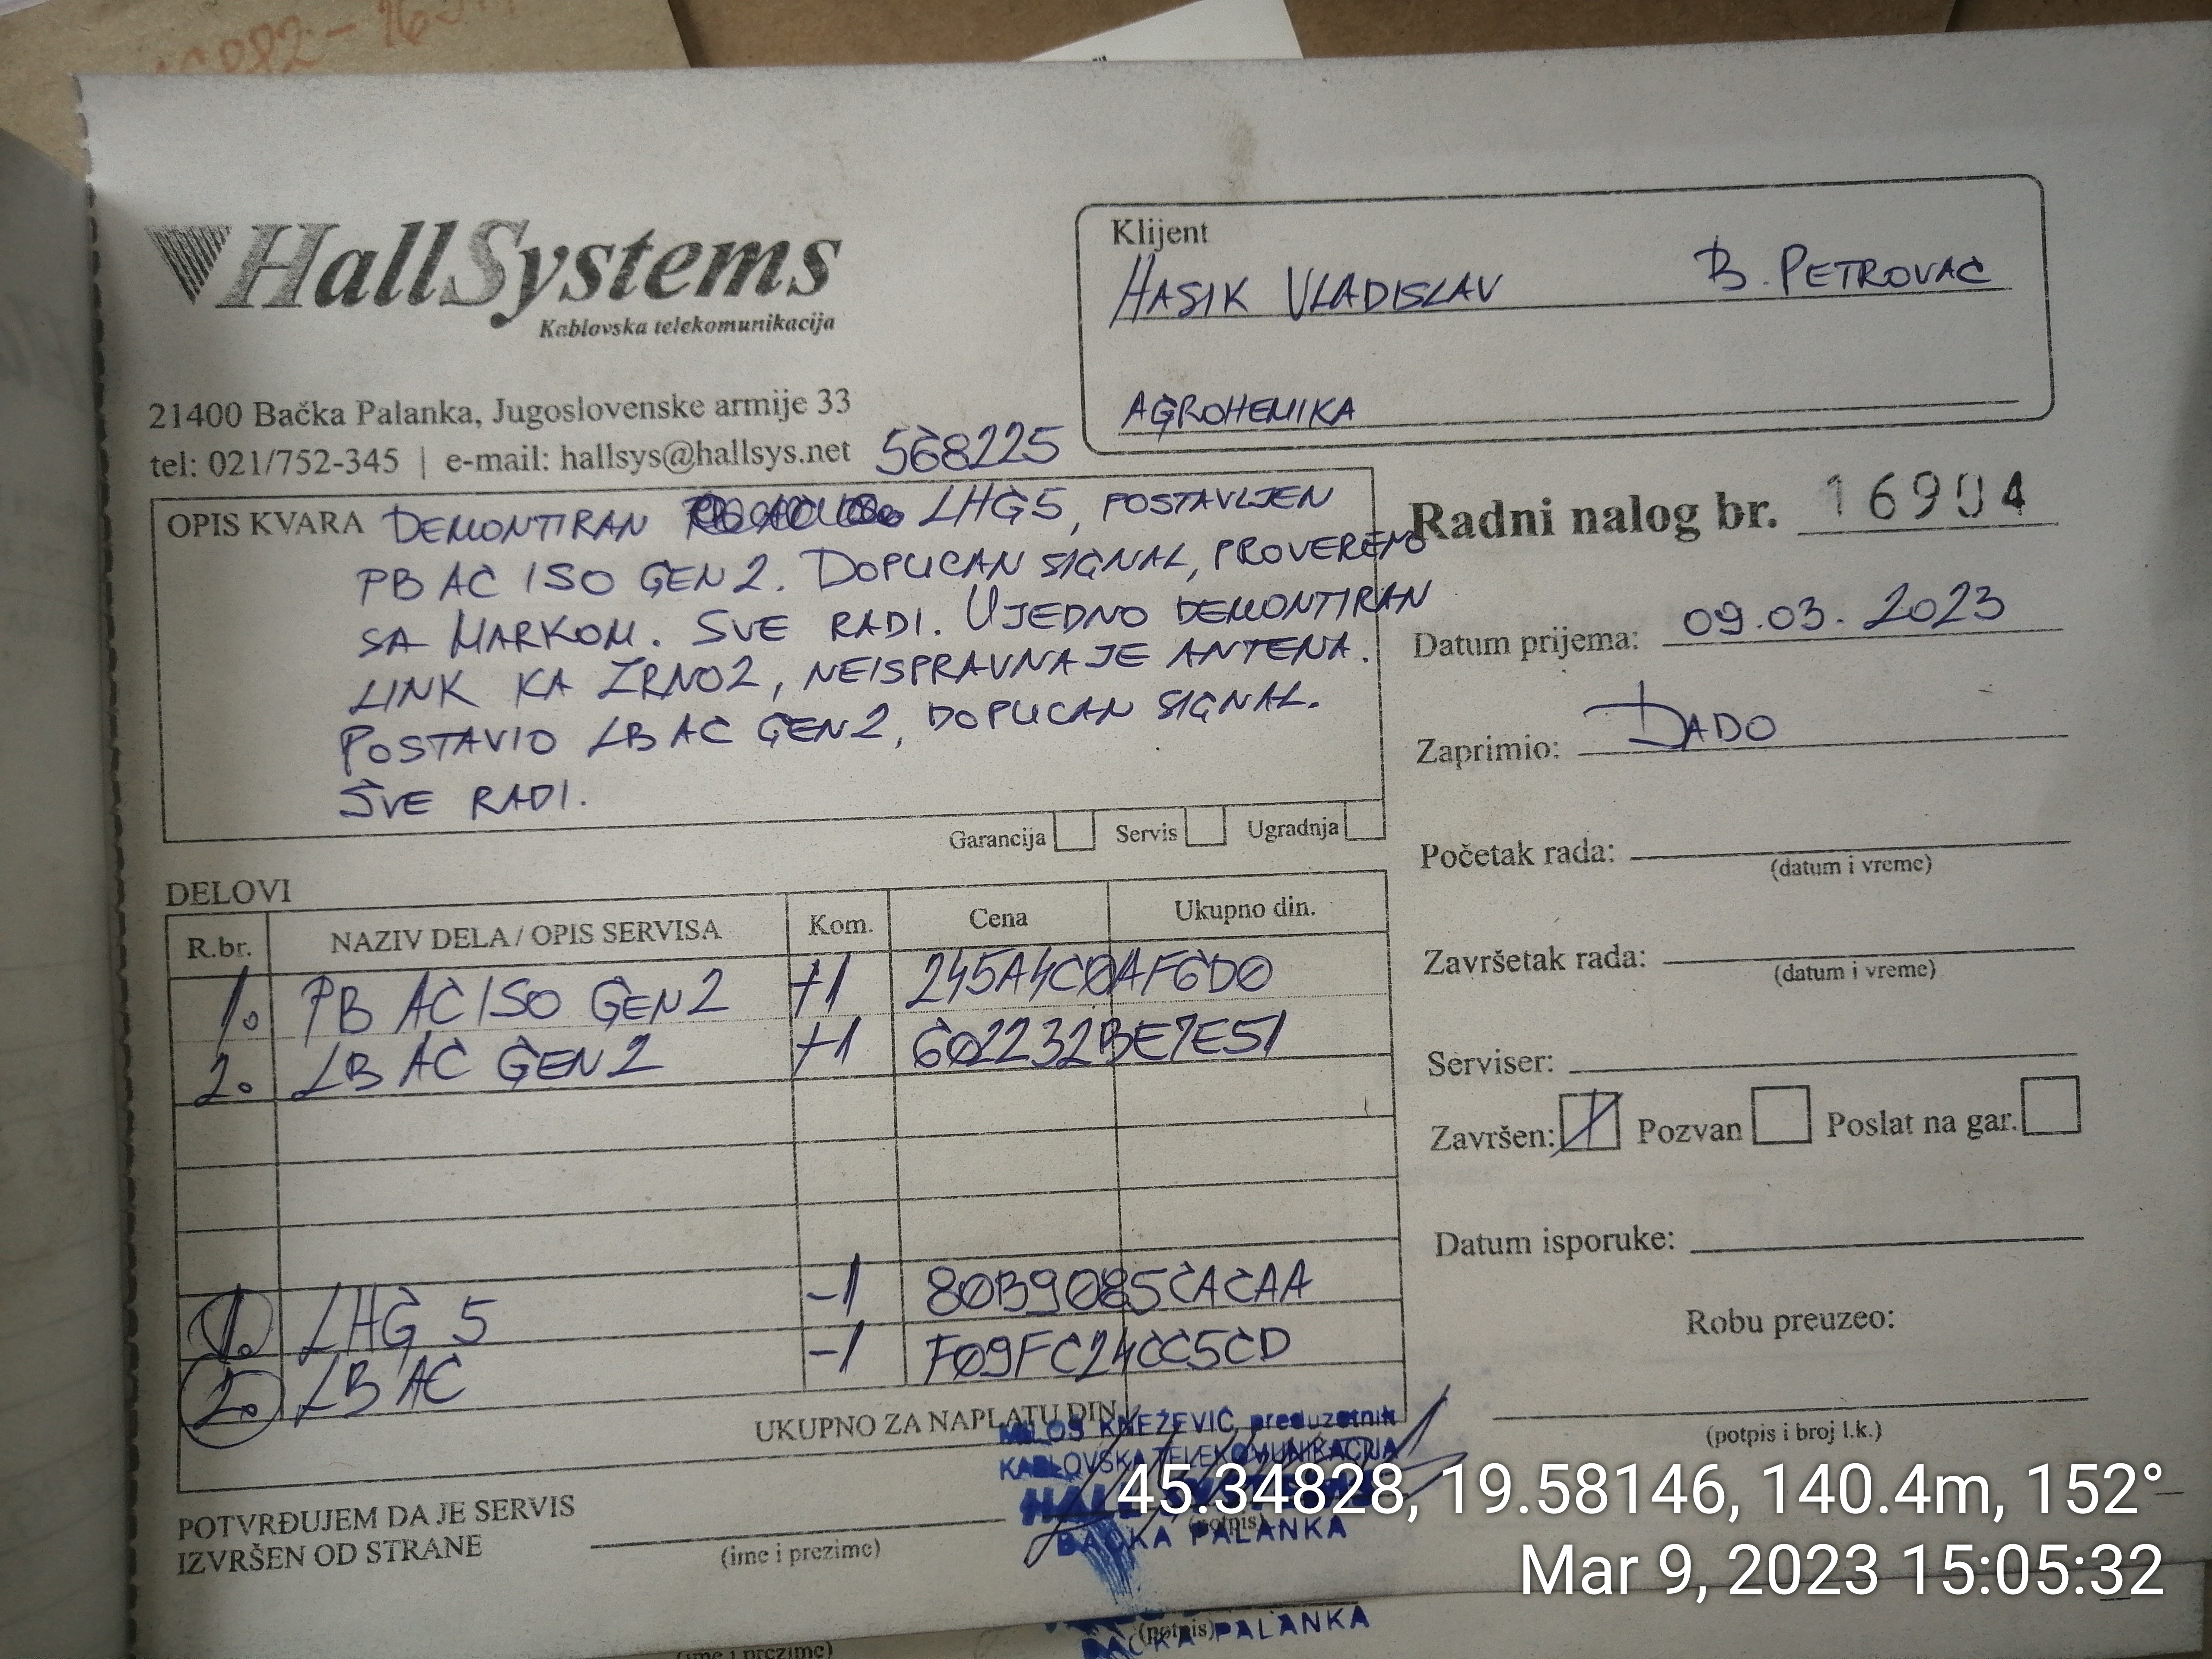 HallSystems
Kablovska telekomunikacija
21400 Bačka Palanka, Jugoslovenske armije 33
tel: 021/752-345 | e-mail: hallsys@hallsys.net 568225
Klijent
HASIK VLADISLAV B. PETROVAC
AGROHEMIKA
OPIS KVARA DEMONTIRAN LHG5, POSTAVLJEN
PB AC ISO GEN2. DOPUCAN SIGNAL, PROVERENO
SA MARKOM. SVE RADI. UJEDNO DEMONTIRAN
LINK KA ZRNO2, NEISPRAVNA JE ANTENA.
POSTAVIO LB AC GEN2, DOPUCAN SIGNAL.
SVE RADI.
Garancija Servis Ugradnja
Radni nalog br. 16904
Datum prijema: 09.03.2023
Zaprimio: DADO
Početak rada:
(datum i vreme)
Završetak rada:
(datum i vreme)
Serviser:
Završen: Pozvan Poslat na gar.
Datum isporuke:
Robu preuzeo:
(potpis i broj l.k.)
DELOVI
R.br. NAZIV DELA / OPIS SERVISA Kom. Cena Ukupno din.
1. PB AC ISO GEN2 +1 245A4C0AF6D0
2. LB AC GEN2 +1 602232BE7E51
1. LHG 5 -1 80B9085CACAA
2. LB AC -1 F09FC24CC5CD
UKUPNO ZA NAPLATU DIN
MILOŠ KNEŽEVIĆ, preduzetnik
KABLOVSKA TELEKOMUNIKACIJA
BAČKA PALANKA
POTVRĐUJEM DA JE SERVIS
IZVRŠEN OD STRANE
(ime i prezime)
(potpis)
45.34828, 19.58146, 140.4m, 152°
Mar 9, 2023 15:05:32
(potpis)
BAČKA PALANKA
(ime i prezime)